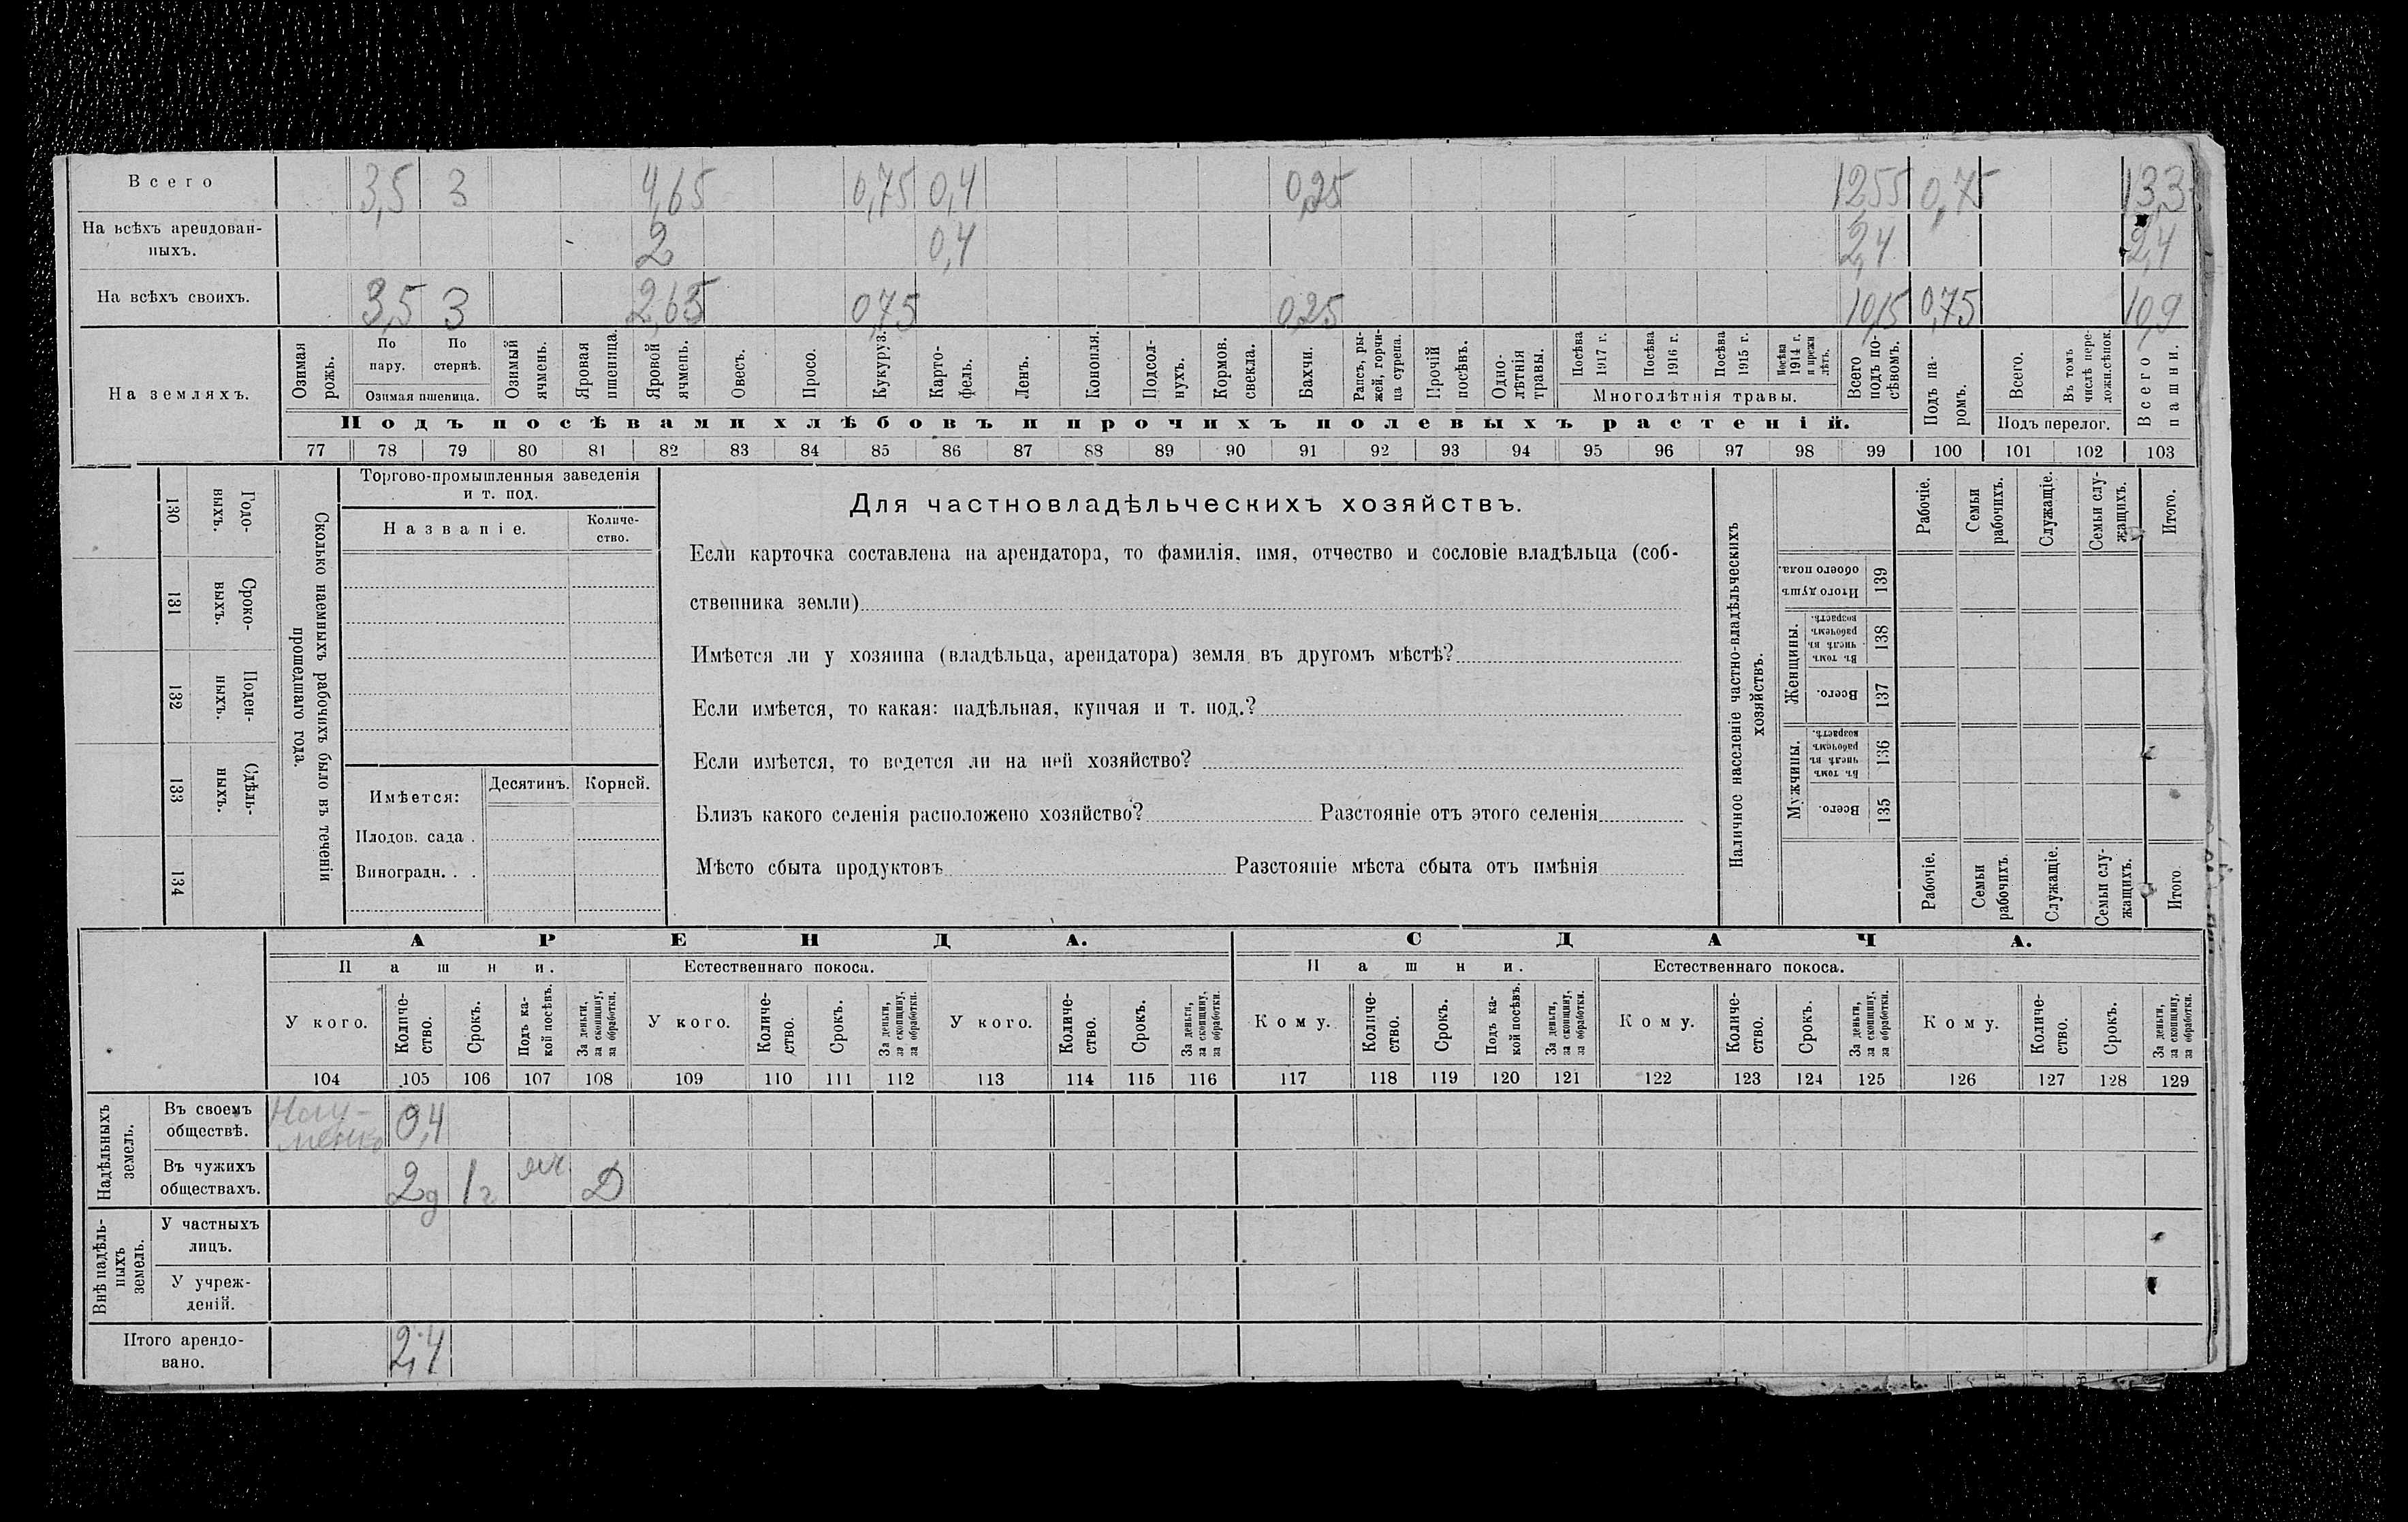 Всего 3,5 3 4,65 0,75 0,4 0,25 12,55 0,75 13,3
На всѣхъ арендован-
ныхъ. 2 0,4 2,4 2,4
На всѣхъ своихъ. 3,5 3 2,65 0,75 0,25 10,15 0,75 10,9
На земляхъ.
Озимая рожь.
По пару.
По стернѣ.
Озимая пшеница.
Озимый ячмень.
Яровая пшеница.
Яровой ячмень.
Овесъ.
Просо.
Кукуруз.
Карто-
фель.
Ленъ.
Конопля.
Подсол-
нухъ.
Кормов. свекла.
Бахчи.
Рапсъ, ры-
жей, горчи-
ца сурепа.
Прочій посѣвъ.
Одно-
лѣтнія травы.
Посѣва 1917 г.
Посѣва 1916 г.
Посѣва 1915 г.
Посѣва 1914 г. и прежн лѣтъ.
Многолѣтнія травы.
Всего подъ по-
сѣвомъ.
Подъ па-
ромъ.
Всего.
Въ томъ числѣ пере-
ложн.сѣнок.
Подъ перелог.
Всего пашни.
Подъ посѣвами хлѣбовъ и прочихъ полевыхъ растеній.
77 78 79 80 81 82 83 84 85 86 87 88 89 90 91 92 93 94 95 96 97 98 99 100 101 102 103
Сколько наемныхъ рабочихъ было въ теченіи
прошедшаго года.
Годо-
выхъ.
130
Сроко-
выхъ.
131
Поден-
ныхъ.
132
Сдѣль-
ныхъ.
133
134
Торгово-промышленныя заведенія
и т. под.
Названіе.
Количе-
ство.
Имѣется:
Десятинъ.
Корней.
Плодов. сада .
Виноградн. . .
Для частновладѣльческихъ хозяйствъ.
Если карточка составлена на арендатора, то фамилія, имя, отчество и сословіе владѣльца (соб-
ственника земли)
Имѣется ли у хозяина (владѣльца, арендатора) земля въ другомъ мѣстѣ?
Если имѣется, то какая: надѣльная, купчая и т. под.?
Если имѣется, то ведется ли на ней хозяйство?
Близъ какого селенія расположено хозяйство? Разстояніе отъ этого селенія
Мѣсто сбыта продуктовъ Разстояніе мѣста сбыта отъ имѣнія
Наличное населеніе частно-владѣльческихъ
хозяйствъ.
Рабочіе.
Семьи рабочихъ.
Служащіе.
Семьи слу-
жащихъ.
Итого.
Итого душъ обоего пола.
139
Женщины.
Въ томъ числѣ въ рабочемъ возрастѣ.
138
Всего.
137
Мужчины.
Въ томъ числѣ въ рабочемъ возрастѣ.
136
Всего.
135
Рабочіе.
Семьи рабочихъ.
Служащіе.
Семьи слу-
жащихъ.
Итого.
АРЕНДА.
СДАЧА.
Пашни.
Естественнаго покоса.
Пашни.
Естественнаго покоса.
У кого.
Количе-
ство.
Срокъ.
Подъ ка-
кой посѣвъ.
За деньги,
за скопщину,
за обработки.
У кого.
Количе-
ство.
Срокъ.
За деньги,
за скопщину,
за обработки.
У кого.
Количе-
ство.
Срокъ.
За деньги,
за скопщину,
за обработки.
Кому.
Количе-
ство.
Срокъ.
Подъ ка-
кой посѣвъ.
За деньги,
за скопщину,
за обработки.
Кому.
Количе-
ство.
Срокъ.
За деньги,
за скопщину,
за обработки.
Кому.
Количе-
ство.
Срокъ.
За деньги,
за скопщину,
за обработки.
104 105 106 107 108 109 110 111 112 113 114 115 116 117 118 119 120 121 122 123 124 125 126 127 128 129
Надѣльныхъ
земель.
Въ своемъ
обществѣ. 0,4
Въ чужихъ
обществахъ. 2д 1г яч Д
Внѣ надѣль-
ныхъ
земель.
У частныхъ
лицъ.
У учреж-
деній.
Итого арендо-
вано. 2,4